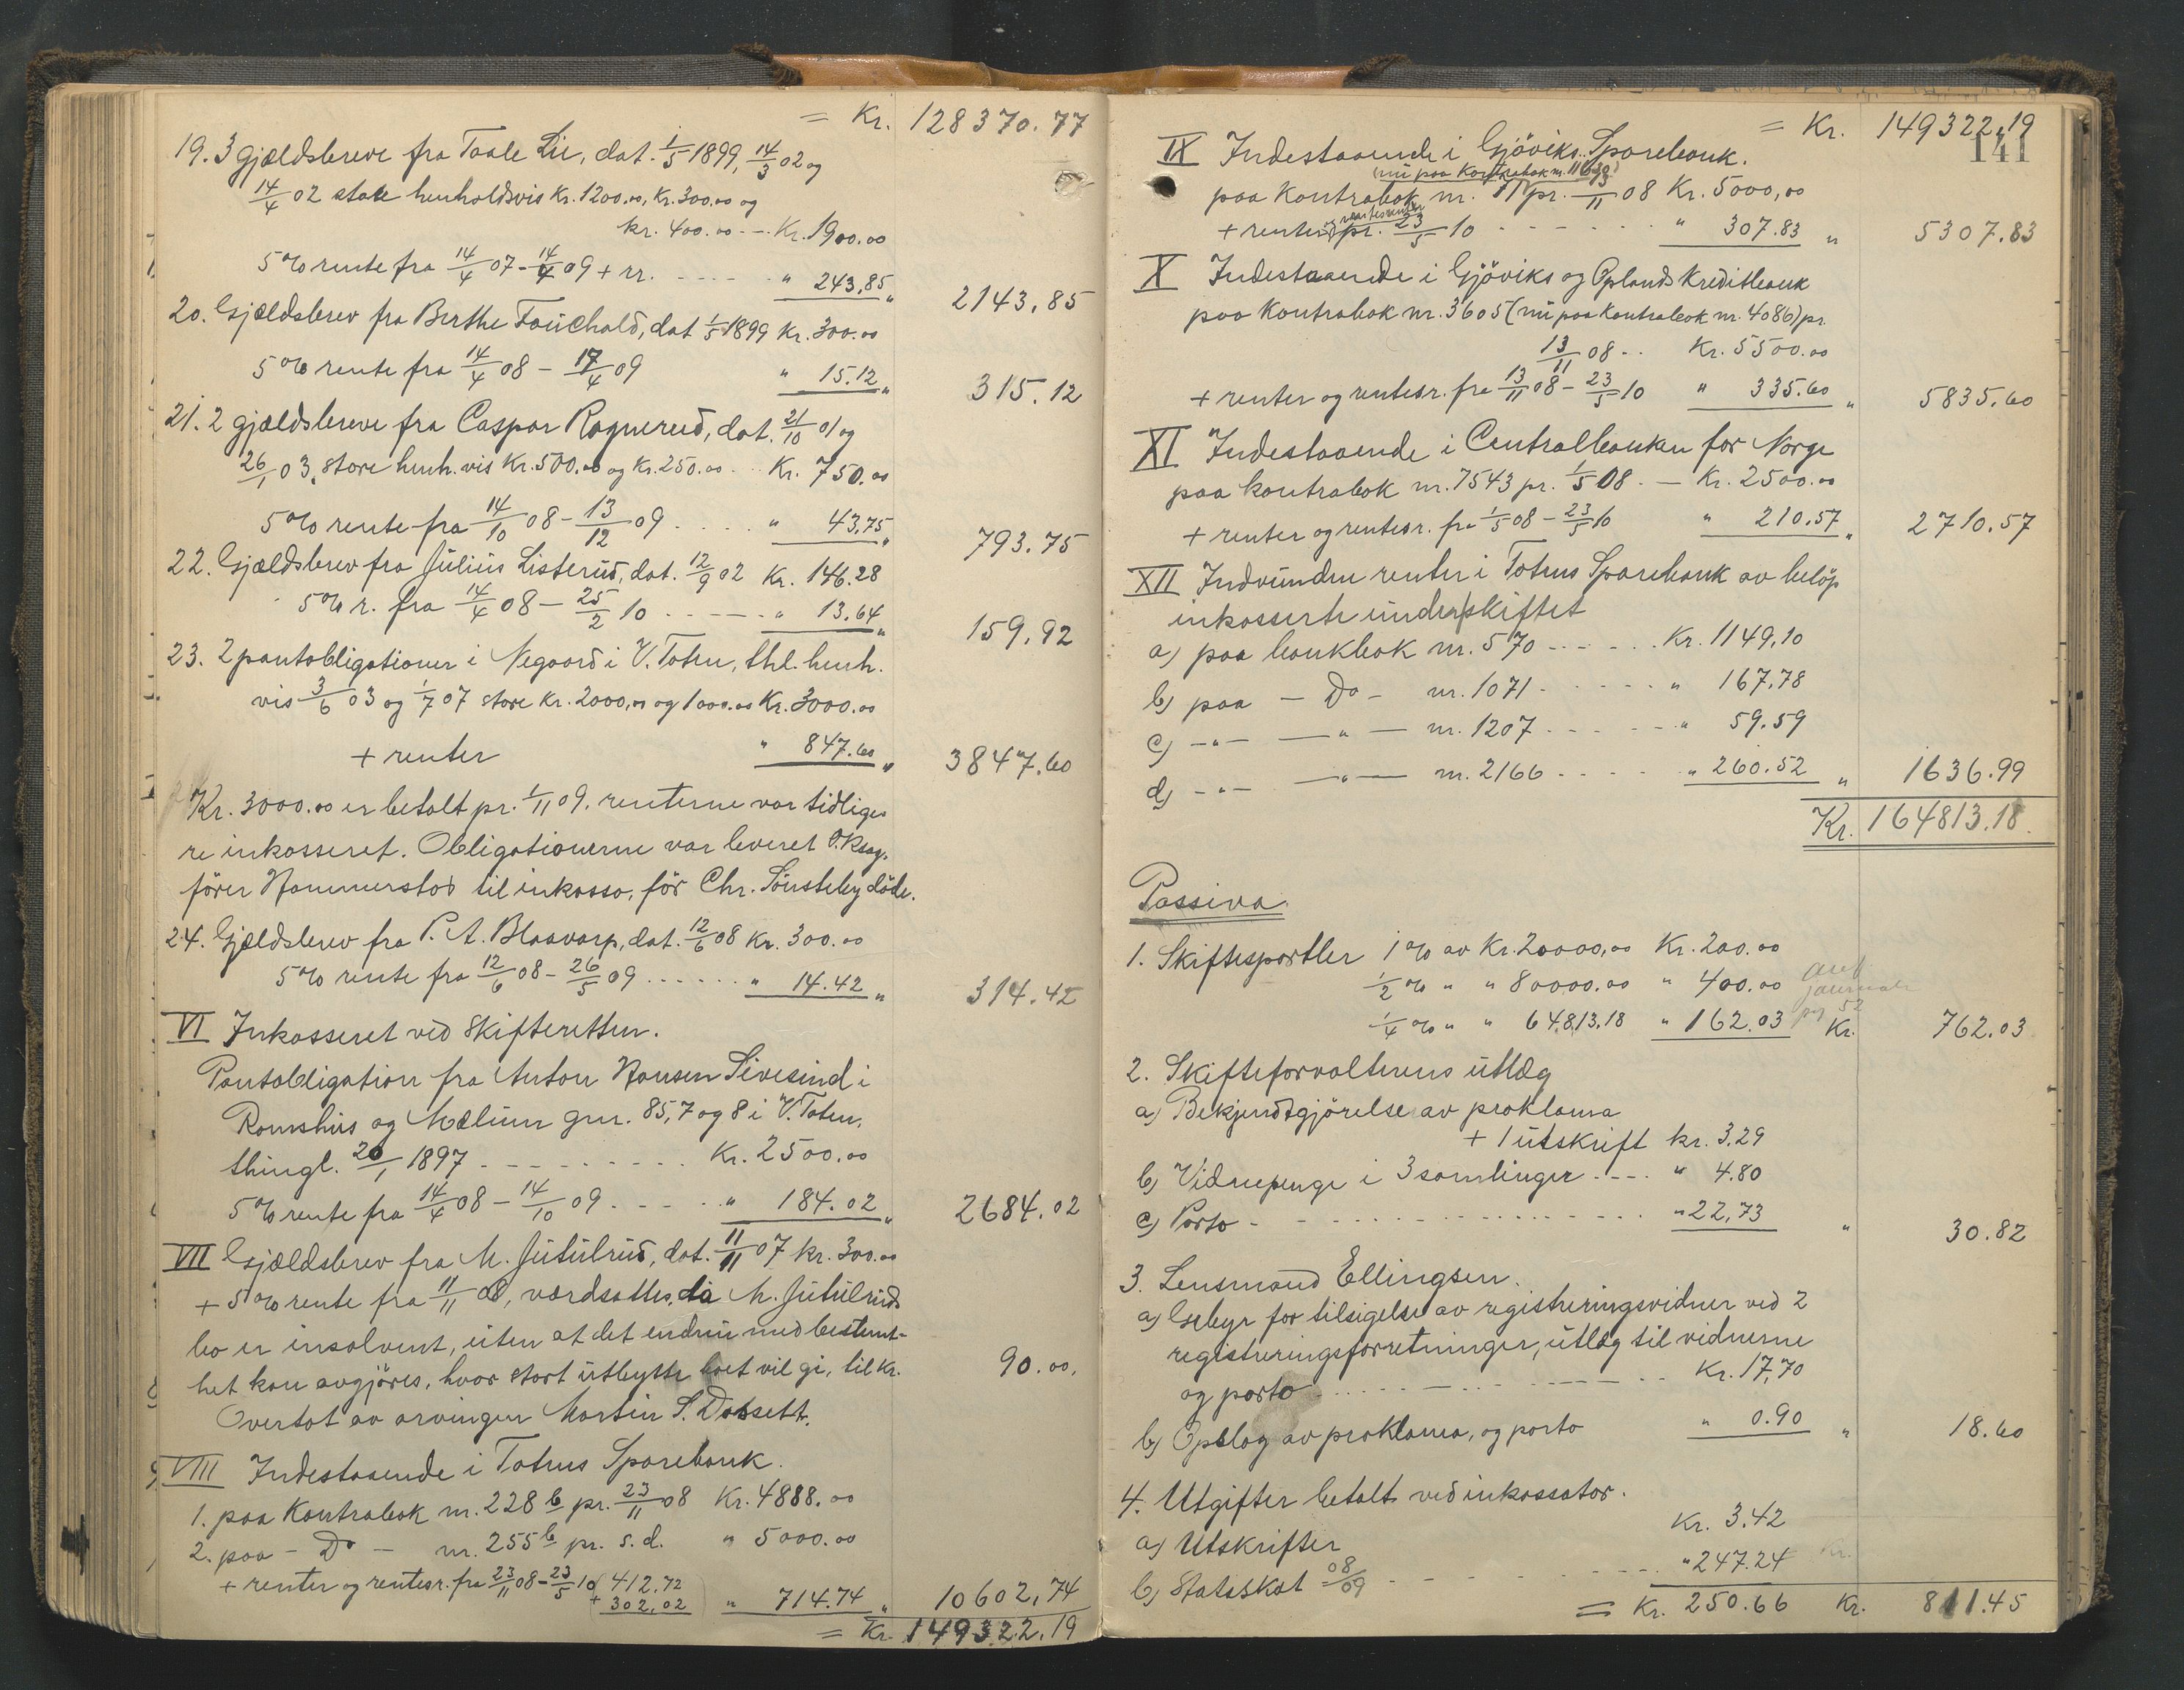 = Kr. 128370.77
19. 3 gjældsbreve fra Taale Lie, dat. 1/5 1899, 14/3 02 og
14/4 02 store henholdsvis Kr. 1200.00, Kr. 300.00 og
kr. 400.00 - - Kr. 1900.00
5 % rente fra 14/4 07 - 14/4 09 + rr. - - - - " 243,85 " 2143,85
20. Gjældsbrev fra Berthe Fauchald, dat 1/5 1899 Kr. 300.00
5 % rente fra 14/4 08 - 17/4 09 " 15.12 " 315.12
21. 2 gjældsbreve fra Caspar Rognerud, dat. 21/10 01 og
26/1 03, store henh.vis Kr. 500.00 og Kr. 250.00 - - Kr. 750.00
5 % rente fra 14/10 08 - 13/12 09 . . . . " 43.75 " 793.75
22. Gjældsbrev fra Julius Listerud, dat. 12/9 02 Kr. 146.28
5 % r. fra 14/4 08 - 25/2 10 - - - - - " 13.64 " 159.92
23. 2 pantobligationer i Negaard i V. Toten, thl. henh.
vis 3/6 03 og 1/7 07 store Kr. 2000,00 og 1000.00 Kr. 3000.00
+ renter " 847.60 " 3847.60
Kr. 3000.00 er betalt pr. 1/11 09, renterne var tidlige-
re inkasseret. Obligationerne var leveret O.ksag-
fører Hammerstad til inkasso, før Chr. Sønsteby døde.
24. Gjældsbrev fra P. A. Blaavarp, dat. 12/6 08 Kr. 300.00
5 % rente fra 12/6 08 - 26/5 09 . . . . . . " 14.42 " 314.42
VI Inkasseret ved skifteretten.
Pantobligation fra Anton Hansen Sivesind i
Romshus og Mælum grn. 85, 7 og 8 i V. Toten,
thingl. 20/1 1897 - - - - - - - - Kr. 2500.00
5 % rente fra 14/4 08 - 14/10 09 - - - - " 184.02 " 2684.02
VII Gjældsbrev fra M. Jutulrud, dat. 11/11 07 kr. 300.00
+ 5 % rente fra 11/11 08, værdsattes, da M. Jutulruds
bo er insolvent, uten at det endnu med bestemt-
het kan avgjøres, hvor stort utbytte boet vil gi, til Kr. 90.00,
Overtat av arvingen Martin S. Dahsett.
VIII Indestaaende i Totens Sparebank.
1. paa Kontrabok nr. 228 b pr. 23/11 08 Kr. 4888.00
2. paa - Do - nr. 255 b pr. s.d. " 5000.00
+ renter og rentesr. fra 23/11 08 - 23/5 10 ( 412.72
+ 302.02 ) " 714.74 " 10602,74
= Kr. 149322.19
= Kr. 149322,19
141
IX Indestaaende i Gjøviks Sparebank.
(nu paa Kontrabok nr. 11639)
paa kontrabok nr. pr. 13/11 08 Kr. 5000,00
+ renter og rentesrenter pr. 23/5 10 - - - - - - " 307.83 " 5307.83
X Indestaaende i Gjøviks og Oplands Kreditbank
paa Kontrabok nr. 3605 (nu paa Kontrabok nr. 4086) pr.
13/11 08 - - Kr. 5500.00
+ renter og rentesr. fra 13/11 08 - 23/5 10 " 335.60 " 5835.60
XI Indestaaende i Centralbanken for Norge
paa kontrabok nr. 7543 pr. 1/5 08 - - Kr. 2500.00
+ renter og rentesr. fra 1/5 08 - 23/5 10 " 210.57 " 2710.57
XII Indvundne renter i Totens Sparebank av beløp
inkasserte under skiftet
a) paa bankbok nr. 570 - - - - - Kr. 1149.10
b) paa - Do - nr. 1071 - - - - - " 167,78
c) -"- -"- nr. 1207 - - - - - " 59.59
d) -"- -"- nr. 2166 - - - - " 260.52 " 1636.99
Kr. 164813.18.
Passiva
1. Skiftesportler 1 % av Kr. 20000,00 Kr. 200.00
1/2 % " " 80000.00 " 400.00
1/4 % " " 64813.18 " 162.03 Kr. 762.03
2. Skifteforvalterens utlæg
a) Bekjendtgjørelse av proklama
+ 1 utskrift kr. 3.29
b) Vidnepenge i 3 samlinger - - - - " 4.80
c) Porto - - - - - - - - - - " 22,73 " 30.82
3. Lensmand Ellingsen.
a) Gebyr for tilsigelse av registreringsvidner ved 2
registreringsforretninger, utlæg til vidnerne
og porto - - - - - - - - Kr. 17,70
b) Opslag av proklama, og porto " 0.90 " 18.60
4. Utgifter betalt ved inkassator.
a) Utskrifter Kr. 3.42
b) Statsskat 08/09 - - - - - - - - " 247.24
= Kr. 250.66 Kr. 811.45